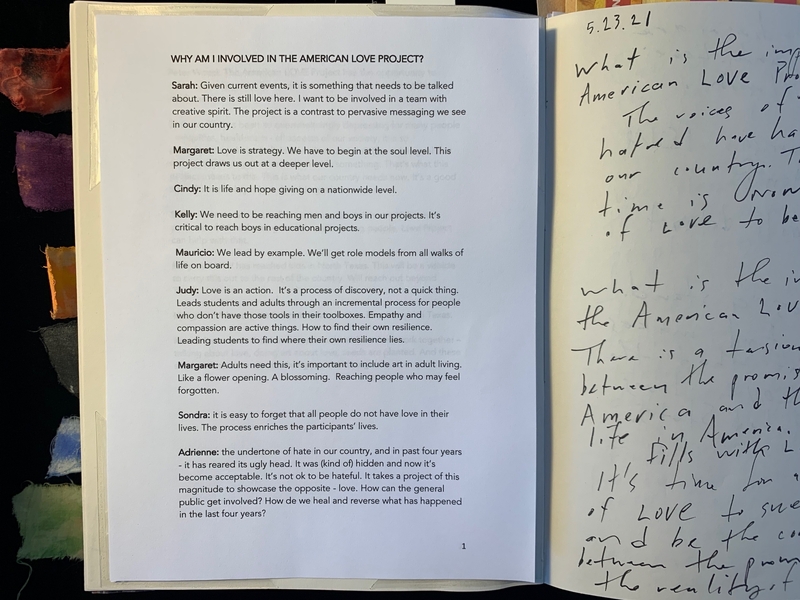 WHY AM I INVOLVED IN THE AMERICAN LOVE PROJECT?
Sarah: Given current events, it is something that needs to be talked
about. There is still love here. I want to be involved in a team with
creative spirit. The project is a contrast to pervasive messaging we see
in our country.
Margaret: Love is strategy. We have to begin at the soul level. This
project draws us out at a deeper level.
Cindy: It is life and hope giving on a nationwide level.
Kelly: We need to be reaching men and boys in our projects. It's
critical to reach boys in educational projects.
Mauricio: We lead by example. We'll get role models from all walks of
life on board.
Judy: Love is an action. It's a process of discovery, not a quick thing.
Leads students and adults through an incremental process for people
who don't have those tools in their toolboxes. Empathy and
compassion are active things. How to find their own resilience.
Leading students to find where their own resilience lies.
Margaret: Adults need this, it's important to include art in adult living.
Like a flower opening. A blossoming. Reaching people who may feel
forgotten.
Sondra: it is easy to forget that all people do not have love in their
lives. The process enriches the participants' lives.
Adrienne: the undertone of hate in our country, and in past four years
- it has reared its ugly head. It was (kind of) hidden and now it's
become acceptable. It's not ok to be hateful. It takes a project of this
magnitude to showcase the opposite - love. How can the general
public get involved? How de we heal and reverse what has happened
in the last four years?
1
5.23.21
What is the imp
American Love Pro
The voices of
hatred have ha
our country. T
time is now
of Love to be
What is the in
the American Lov
There is a tension
between the promis
America and th
life in America.
fills with L
It's time for a
of Love to
and be the co
between the prom
the reality of